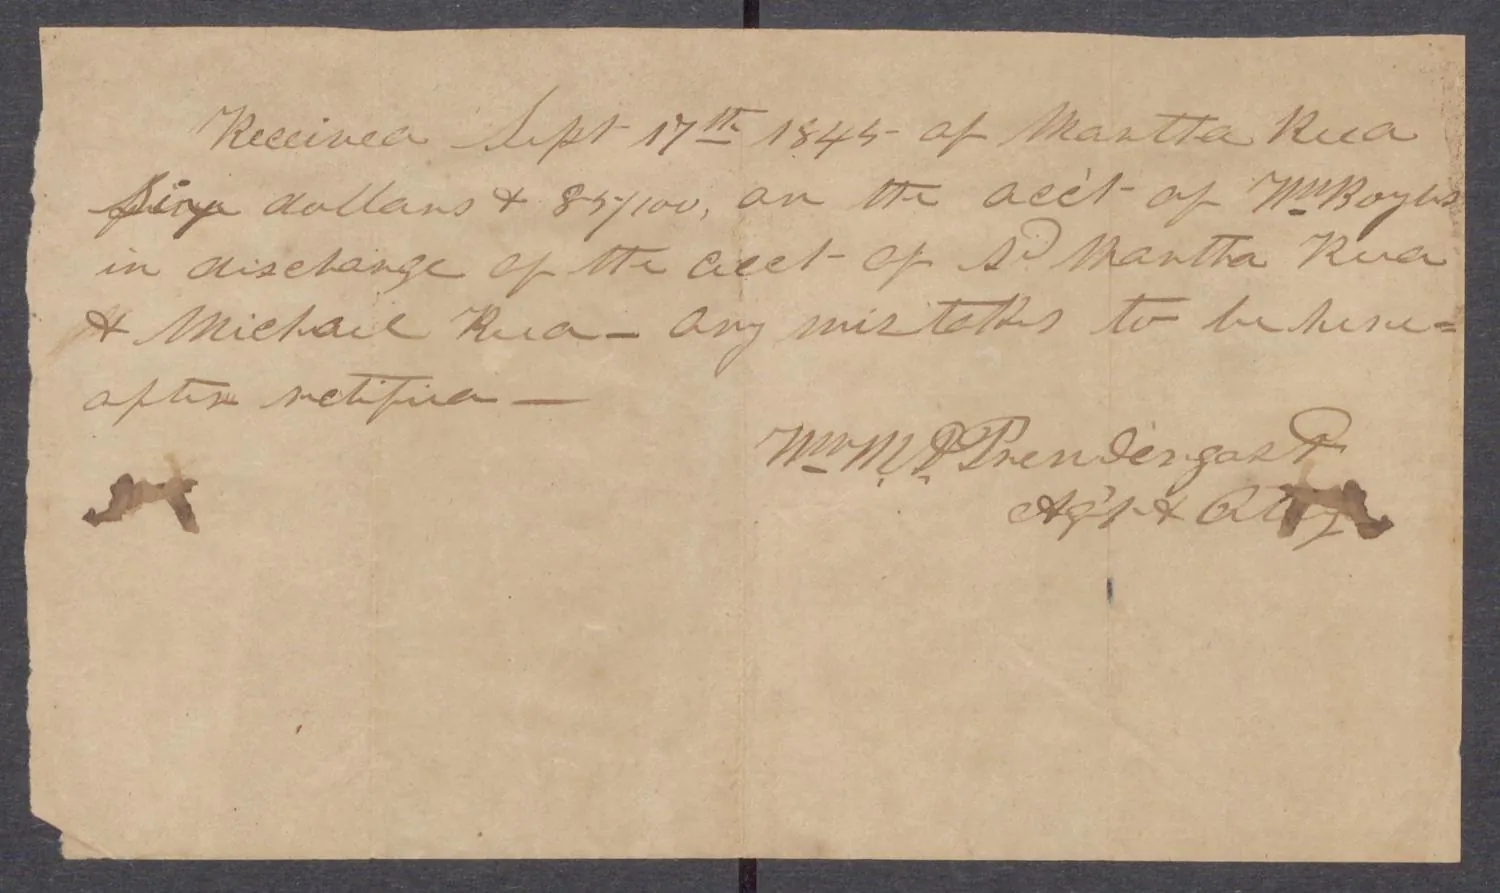 Received Sept 17th 1845 of Martha Rua
dollars & 85/100, on the acc't of Wm Boyles
in discharge of the acct of Sd Martha Rua
& Michael Rua — any mistakes to be here=
after retified —
Wm M. P. Prendergast
Ag't & Atty